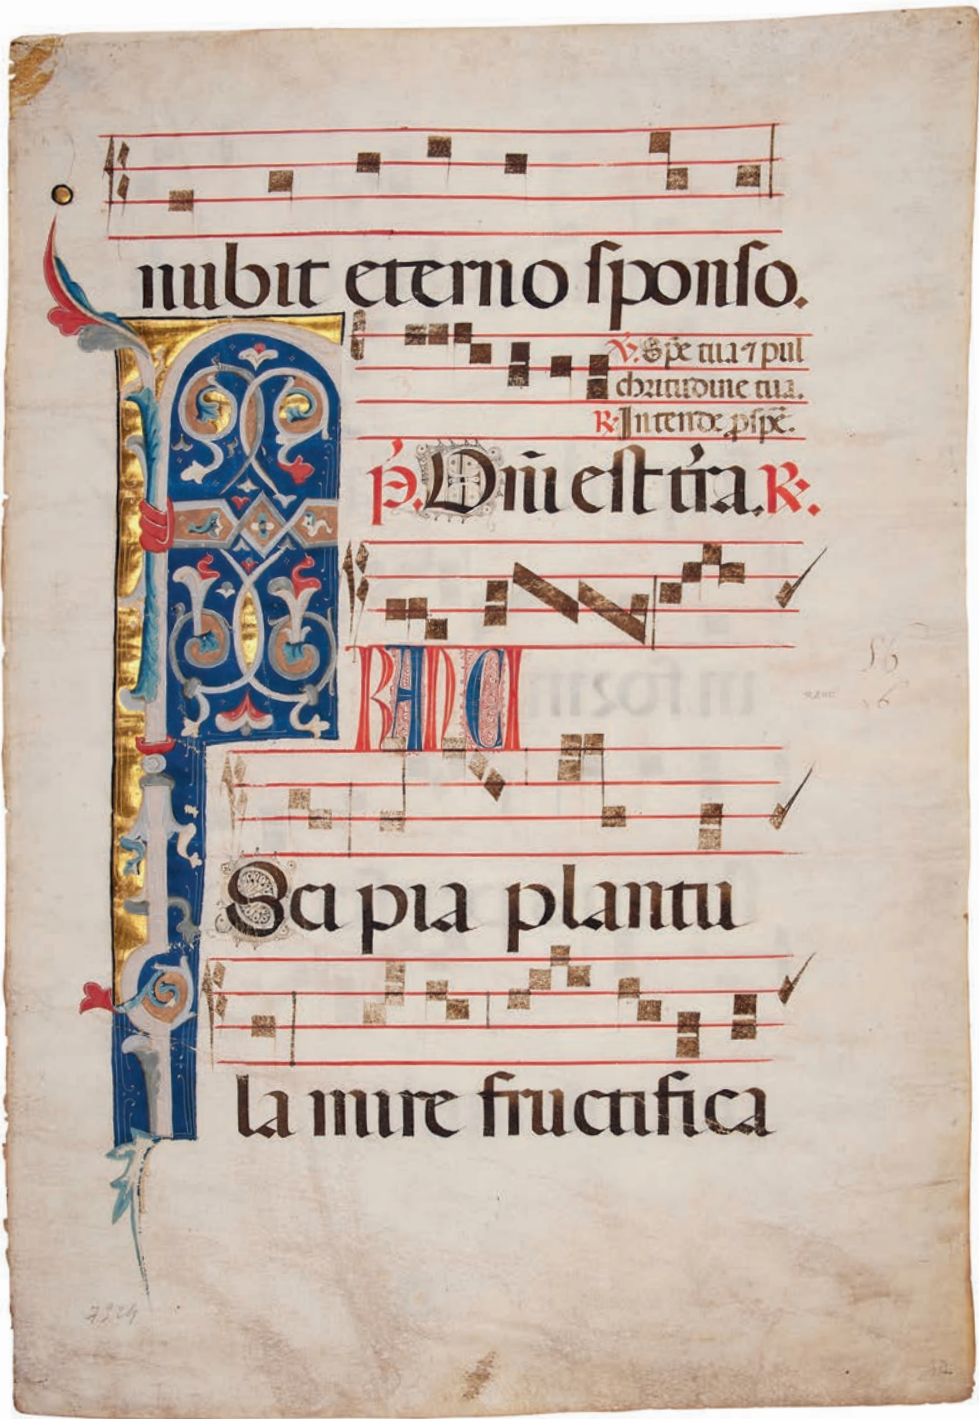 nubit eterno sponso.
V. Spē tua ⁊ pul
chritudine tua.
R. Intende ꝓspē.
p̄. Dn̄i est tr̄a. R.
FRANCI
Sci pia plantu
la mire fructifica
56
6
7924